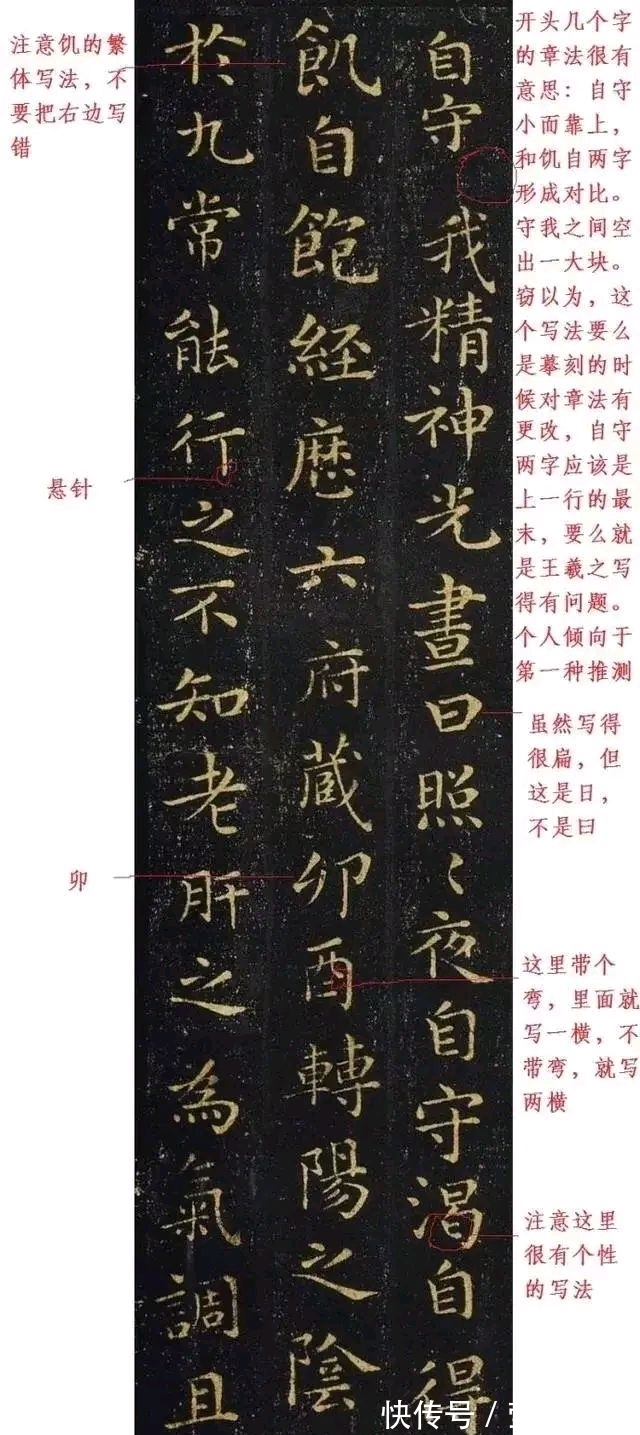 自守我精神光晝日照〻夜自守渴自得
飢自飽經歷六府藏卯酉轉陽之陰
於九常能行之不知老肝之為氣調且
注意饥的繁
体写法，不
要把右边写
错
悬针
卯
开头几个字
的章法很有
意思：自守
小而靠上，
和饥自两字
形成对比。
守我之间空
出一大块。
窃以为，这
个写法要么
是摹刻的时
候对章法有
更改，自守
两字应该是
上一行的最
末，要么就
是王羲之写
得有问题。
个人倾向于
第一种推测
虽然写得
很扁，但
这是日，
不是曰
这里带个
弯，里面就
写一横，不
带弯，就写
两横
注意这里
很有个性
的写法
快传号/